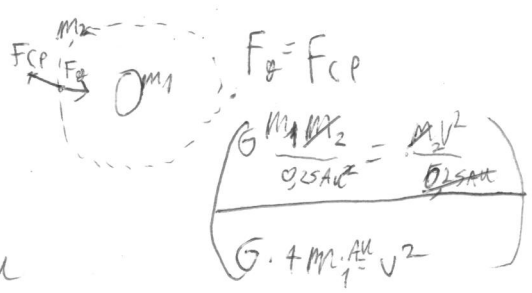 m₂
Fcp Fg m₁
Fg = Fcp
G m₁ m₂ / 0,25AU² = m₂ v² / 0,25AU
G · 4 m₁ · AU v²